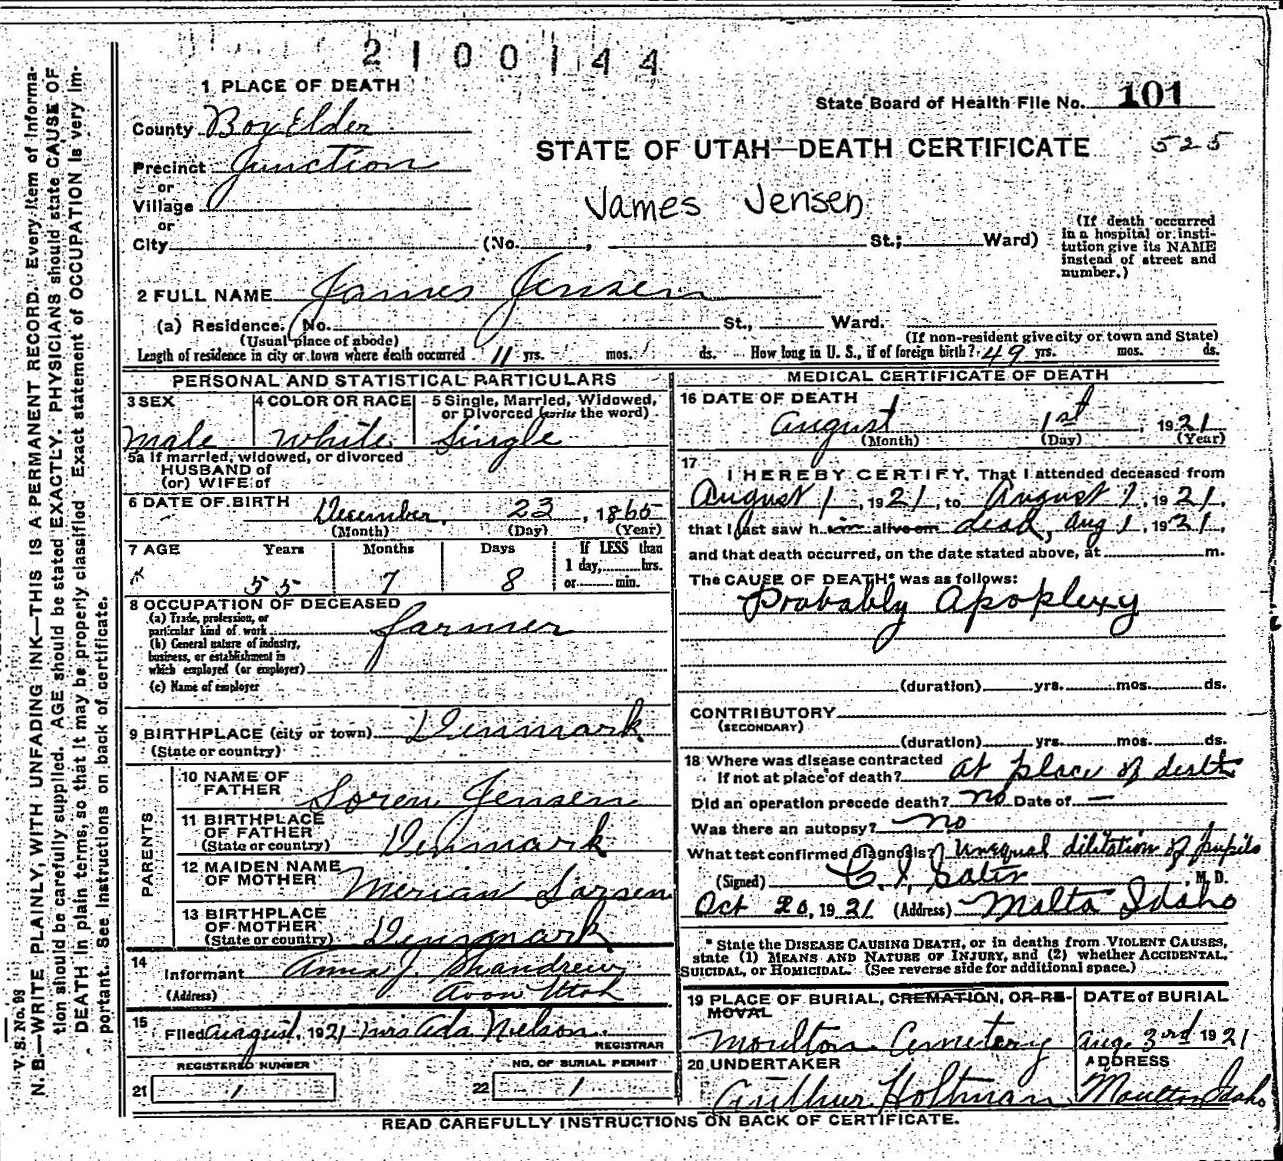 2100144
1 PLACE OF DEATH
State Board of Health File No. 101
County Box Elder
STATE OF UTAH—DEATH CERTIFICATE 525
Precinct Junction
or
Village
James Jensen
or
City (No. , St.; Ward)
(If death occurred
in a hospital or insti-
tution give its NAME
instead of street and
number.)
2 FULL NAME James Jensen
(a) Residence. No. St., Ward.
(Usual place of abode) (If non-resident give city or town and State)
Length of residence in city or town where death occurred 11 yrs. mos. ds. How long in U. S., if of foreign birth? 49 yrs. mos. ds.
PERSONAL AND STATISTICAL PARTICULARS
3 SEX
Male
4 COLOR OR RACE
White
5 Single, Married, Widowed,
or Divorced (write the word)
Single
5a If married, widowed, or divorced
HUSBAND of
(or) WIFE of
6 DATE OF BIRTH
December 23, 1865
(Month) (Day) (Year)
7 AGE Years Months Days
55 7 8
If LESS than
1 day, hrs.
or min.
8 OCCUPATION OF DECEASED
(a) Trade, profession, or
particular kind of work farmer
(b) General nature of industry,
business, or establishment in
which employed (or employer)
(c) Name of employer
9 BIRTHPLACE (city or town) Denmark
(State or country)
PARENTS
10 NAME OF
FATHER Soren Jensen
11 BIRTHPLACE
OF FATHER
(State or country) Denmark
12 MAIDEN NAME
OF MOTHER Merian Larsen
13 BIRTHPLACE
OF MOTHER
(State or country) Denmark
14
Informant Anna J. Shandrew
(Address) Avon Utah
15
Filed August, 1921 Mrs Ada Nielson
REGISTRAR
REGISTERED NUMBER
21 1
NO. OF BURIAL PERMIT
22 1
MEDICAL CERTIFICATE OF DEATH
16 DATE OF DEATH
August 1st, 1921
(Month) (Day) (Year)
17
I HEREBY CERTIFY, That I attended deceased from
August 1, 1921, to August 1, 1921,
that I last saw him alive on dead, Aug 1, 1921,
and that death occurred, on the date stated above, at m.
The CAUSE OF DEATH* was as follows:
Probably Apoplexy
(duration) yrs. mos. ds.
CONTRIBUTORY
(SECONDARY)
(duration) yrs. mos. ds.
18 Where was disease contracted
if not at place of death? at place of death
Did an operation precede death? no Date of —
Was there an autopsy? no
What test confirmed diagnosis? Unequal dilitation of pupils
(Signed) M. D.
Oct 20, 1921 (Address) Malta Idaho
* State the DISEASE CAUSING DEATH, or in deaths from VIOLENT CAUSES,
state (1) MEANS AND NATURE OF INJURY, and (2) whether ACCIDENTAL,
SUICIDAL, or HOMICIDAL. (See reverse side for additional space.)
19 PLACE OF BURIAL, CREMATION, OR RE-
MOVAL
Moulton Cemetery
DATE of BURIAL
Aug. 3rd 1921
20 UNDERTAKER
Arthur Holtman
ADDRESS
Moulton Idaho
READ CAREFULLY INSTRUCTIONS ON BACK OF CERTIFICATE.
V. S. No. 99
N. B.—WRITE PLAINLY, WITH UNFADING INK—THIS IS A PERMANENT RECORD. Every item of informa-
tion should be carefully supplied. AGE should be stated EXACTLY. PHYSICIANS should state CAUSE OF
DEATH in plain terms, so that it may be properly classified. Exact statement of OCCUPATION is very im-
portant. See instructions on back of certificate.